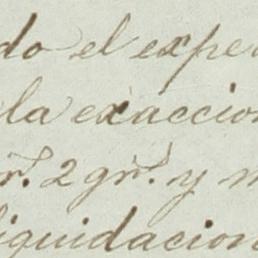 do el expe
la exaccion
r.s 2 gr.s y m
liquidacion